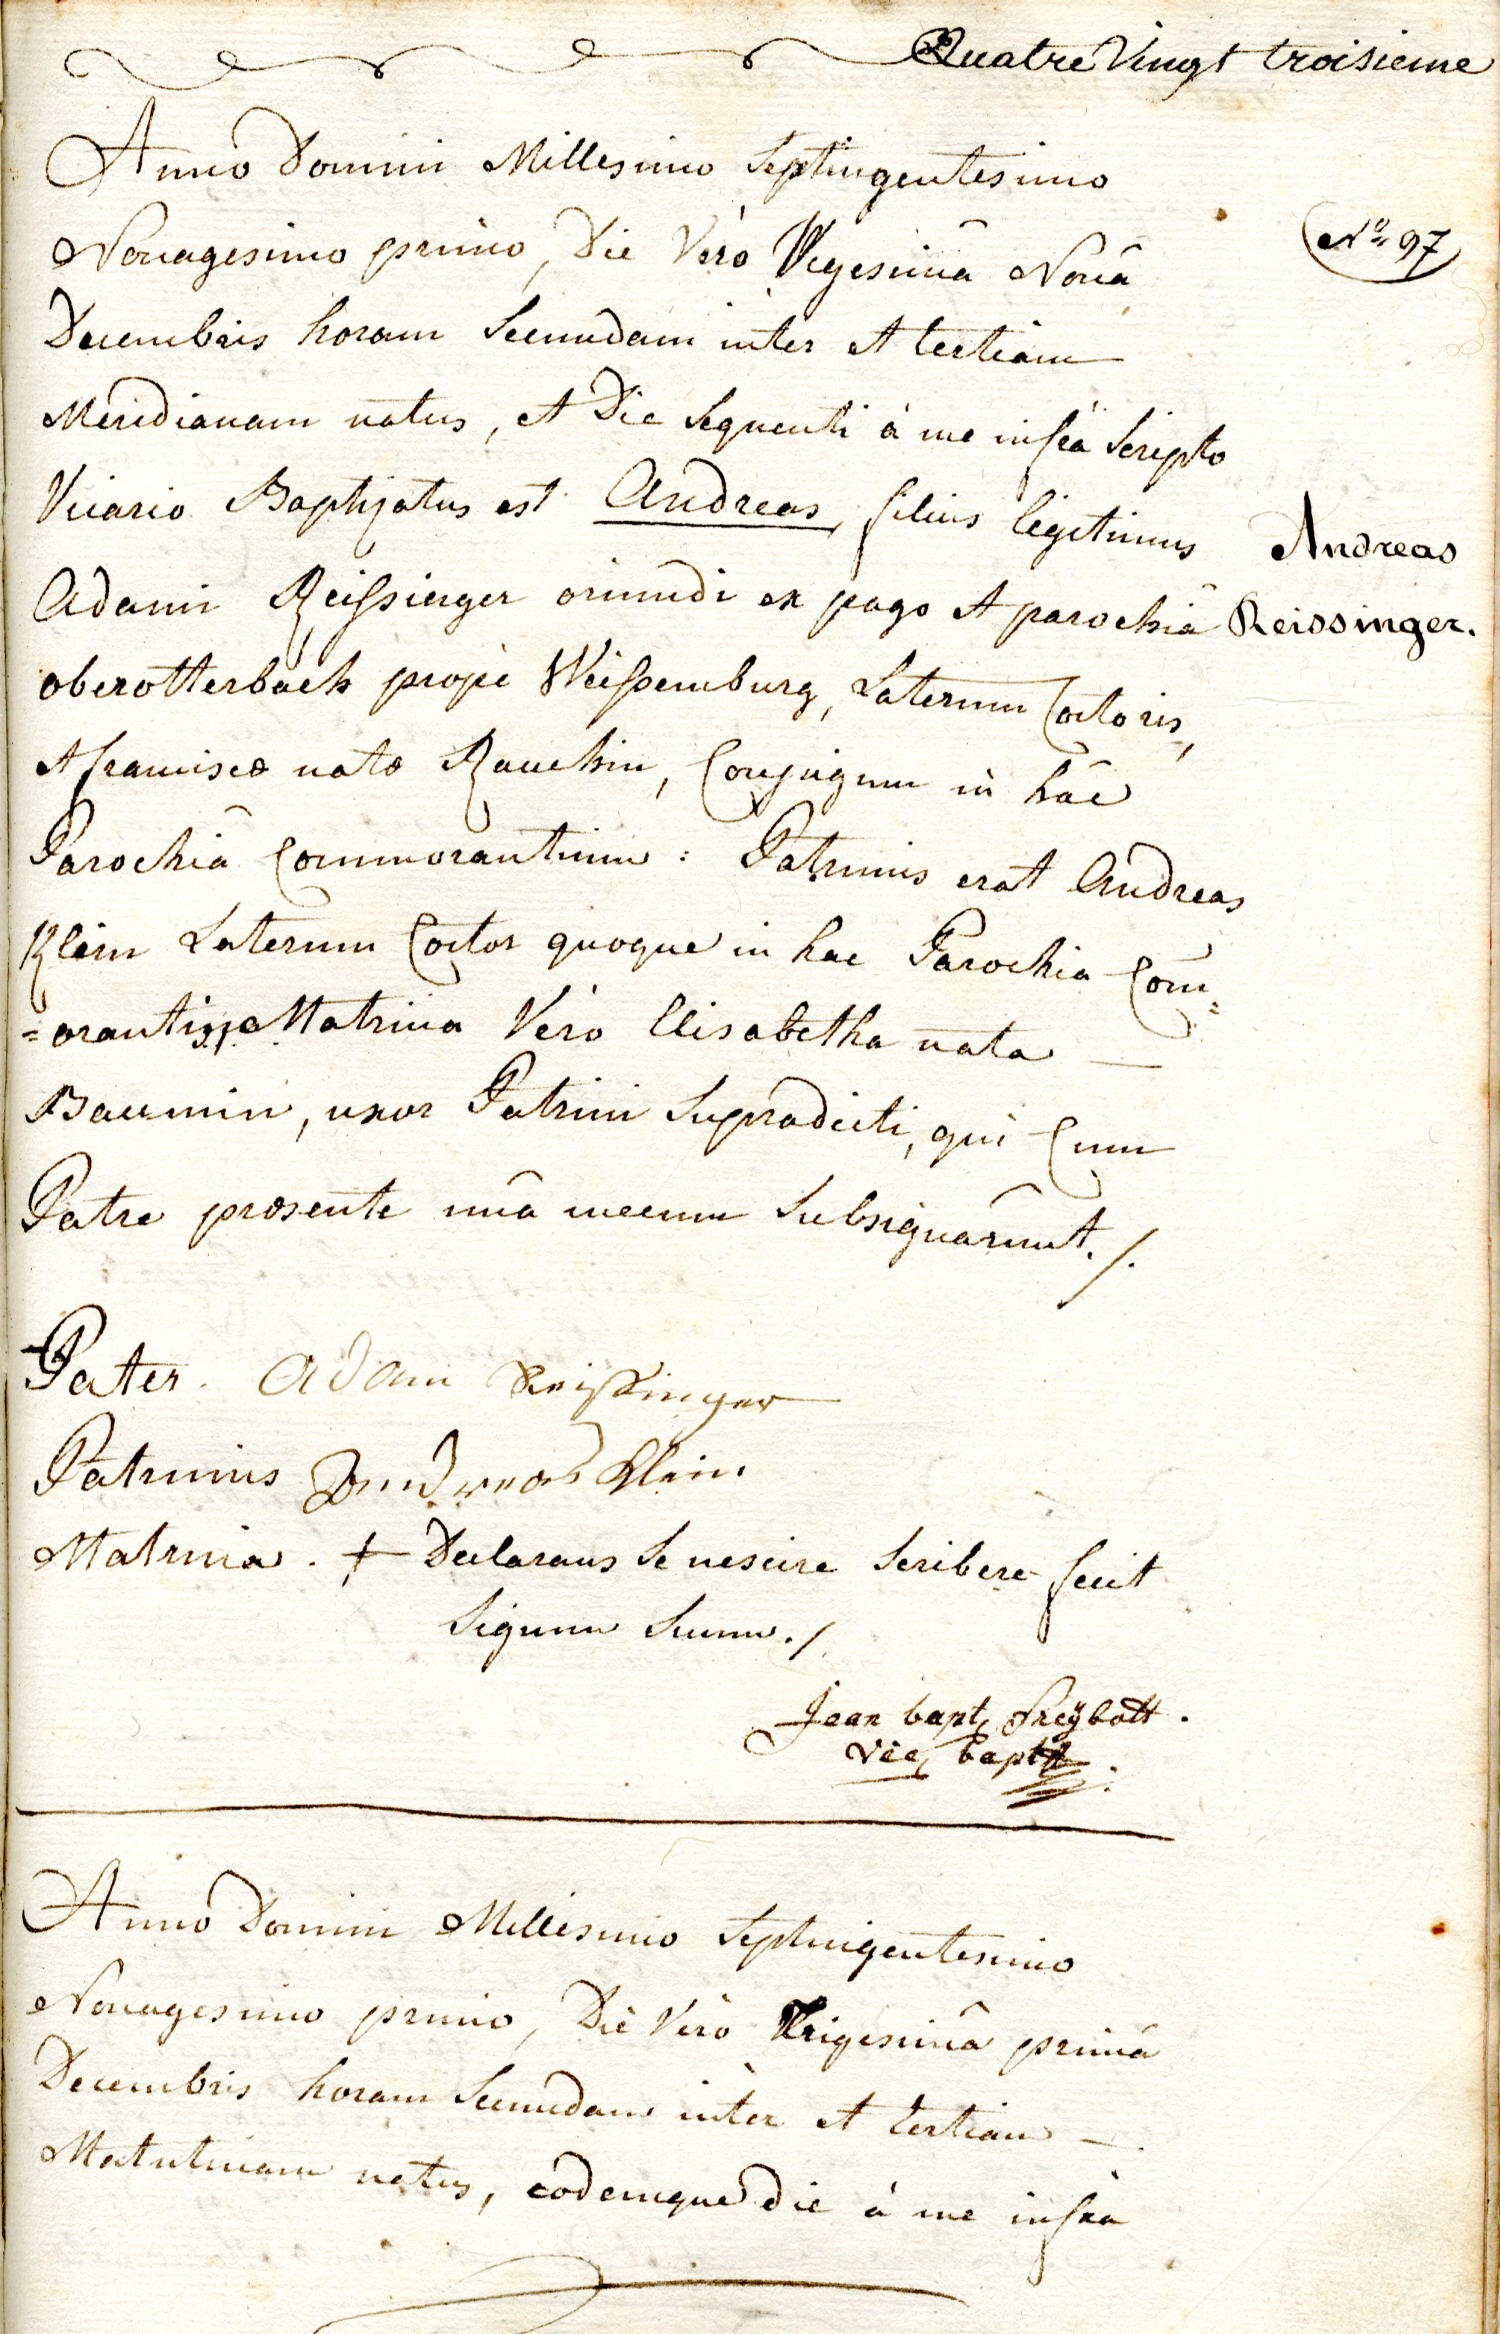 Quatre Vingt troisieme
Anno Domini Millesimo Septingentesimo
Nonagesimo primo, Die Verò Vigesimâ Nonâ
Nº 97
Decembris horam Secundam inter et tertiam
Meridianam natus, et Die Sequenti à me infrà Scripto
Vicario Baptizatus est Andreas, filius legitimus
Andreas
Adami Reissinger oriundi ex pago et parochiâ
Reissinger.
oberotterbach propè Weissemburg, Laterum Coctoris,
et franciscæ natæ Rauchin, Conjugum in hâc
Parochiâ Commorantium : Patrinus erat Andreas
Klein Laterum Coctor quoque in hac Parochia Com=
=orantis, Matrina Verò Elisabetha nata
Baumin, uxor Patrini Supradicti, qui Cum
Patre præsente unâ mecum Subsignârunt. /.
Pater. Adam Reissinger
Patrinus Andreas Klein
Matrina. + Declarans Se nescire Scribere fecit
Signum Suum. /
Jean bapt. Freÿbott.
vic. bapt.
Anno Domini Millesimo Septingentesimo
Nonagesimo primo, Die Verò Trigesimâ primâ
Decembris horam Secundam inter et tertiam
Matutinam natus, eodemque die à me infrà